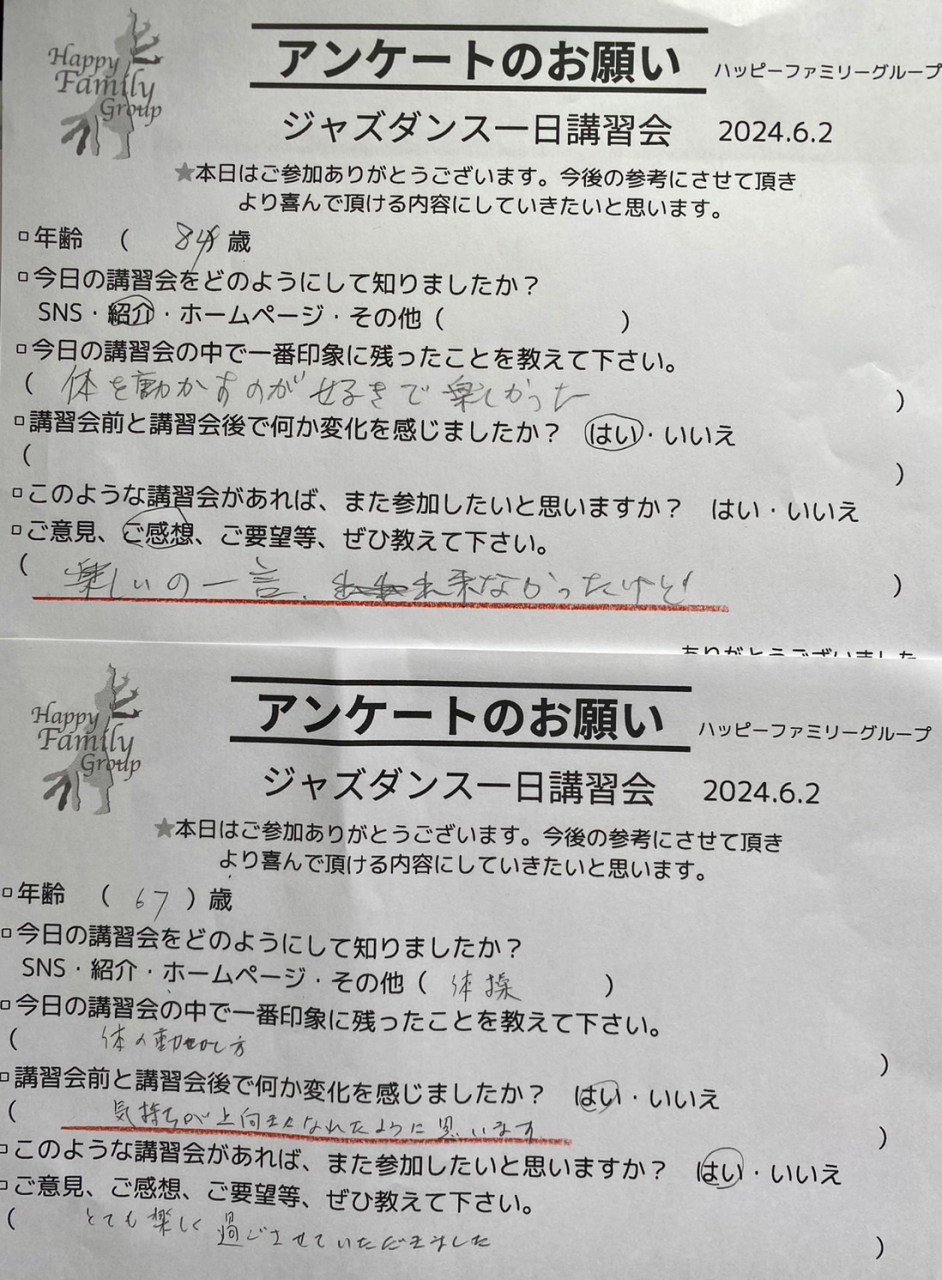 Happy
Family
Group
アンケートのお願い ハッピーファミリーグループ
ジャズダンス一日講習会 2024.6.2
★本日はご参加ありがとうございます。今後の参考にさせて頂き
より喜んで頂ける内容にしていきたいと思います。
□年齢 ( 84 歳
□今日の講習会をどのようにして知りましたか？
SNS・紹介・ホームページ・その他 ( )
□今日の講習会の中で一番印象に残ったことを教えて下さい。
( 体を動かすのが好きで楽しかった )
□講習会前と講習会後で何か変化を感じましたか？ はい・いいえ
( )
□このような講習会があれば、また参加したいと思いますか？ はい・いいえ
□ご意見、ご感想、ご要望等、ぜひ教えて下さい。
( 楽しいの一言、 来なかったけど )
ありがとうございました
Happy
Family
Group
アンケートのお願い ハッピーファミリーグループ
ジャズダンス一日講習会 2024.6.2
★本日はご参加ありがとうございます。今後の参考にさせて頂き
より喜んで頂ける内容にしていきたいと思います。
□年齢 ( 67 ) 歳
□今日の講習会をどのようにして知りましたか？
SNS・紹介・ホームページ・その他 ( 体操 )
□今日の講習会の中で一番印象に残ったことを教えて下さい。
( 体の動かし方 )
□講習会前と講習会後で何か変化を感じましたか？ はい・いいえ
( 気持ちが上向きになれたように思います )
□このような講習会があれば、また参加したいと思いますか？ はい・いいえ
□ご意見、ご感想、ご要望等、ぜひ教えて下さい。
( とても楽しく過ごさせていただきました )